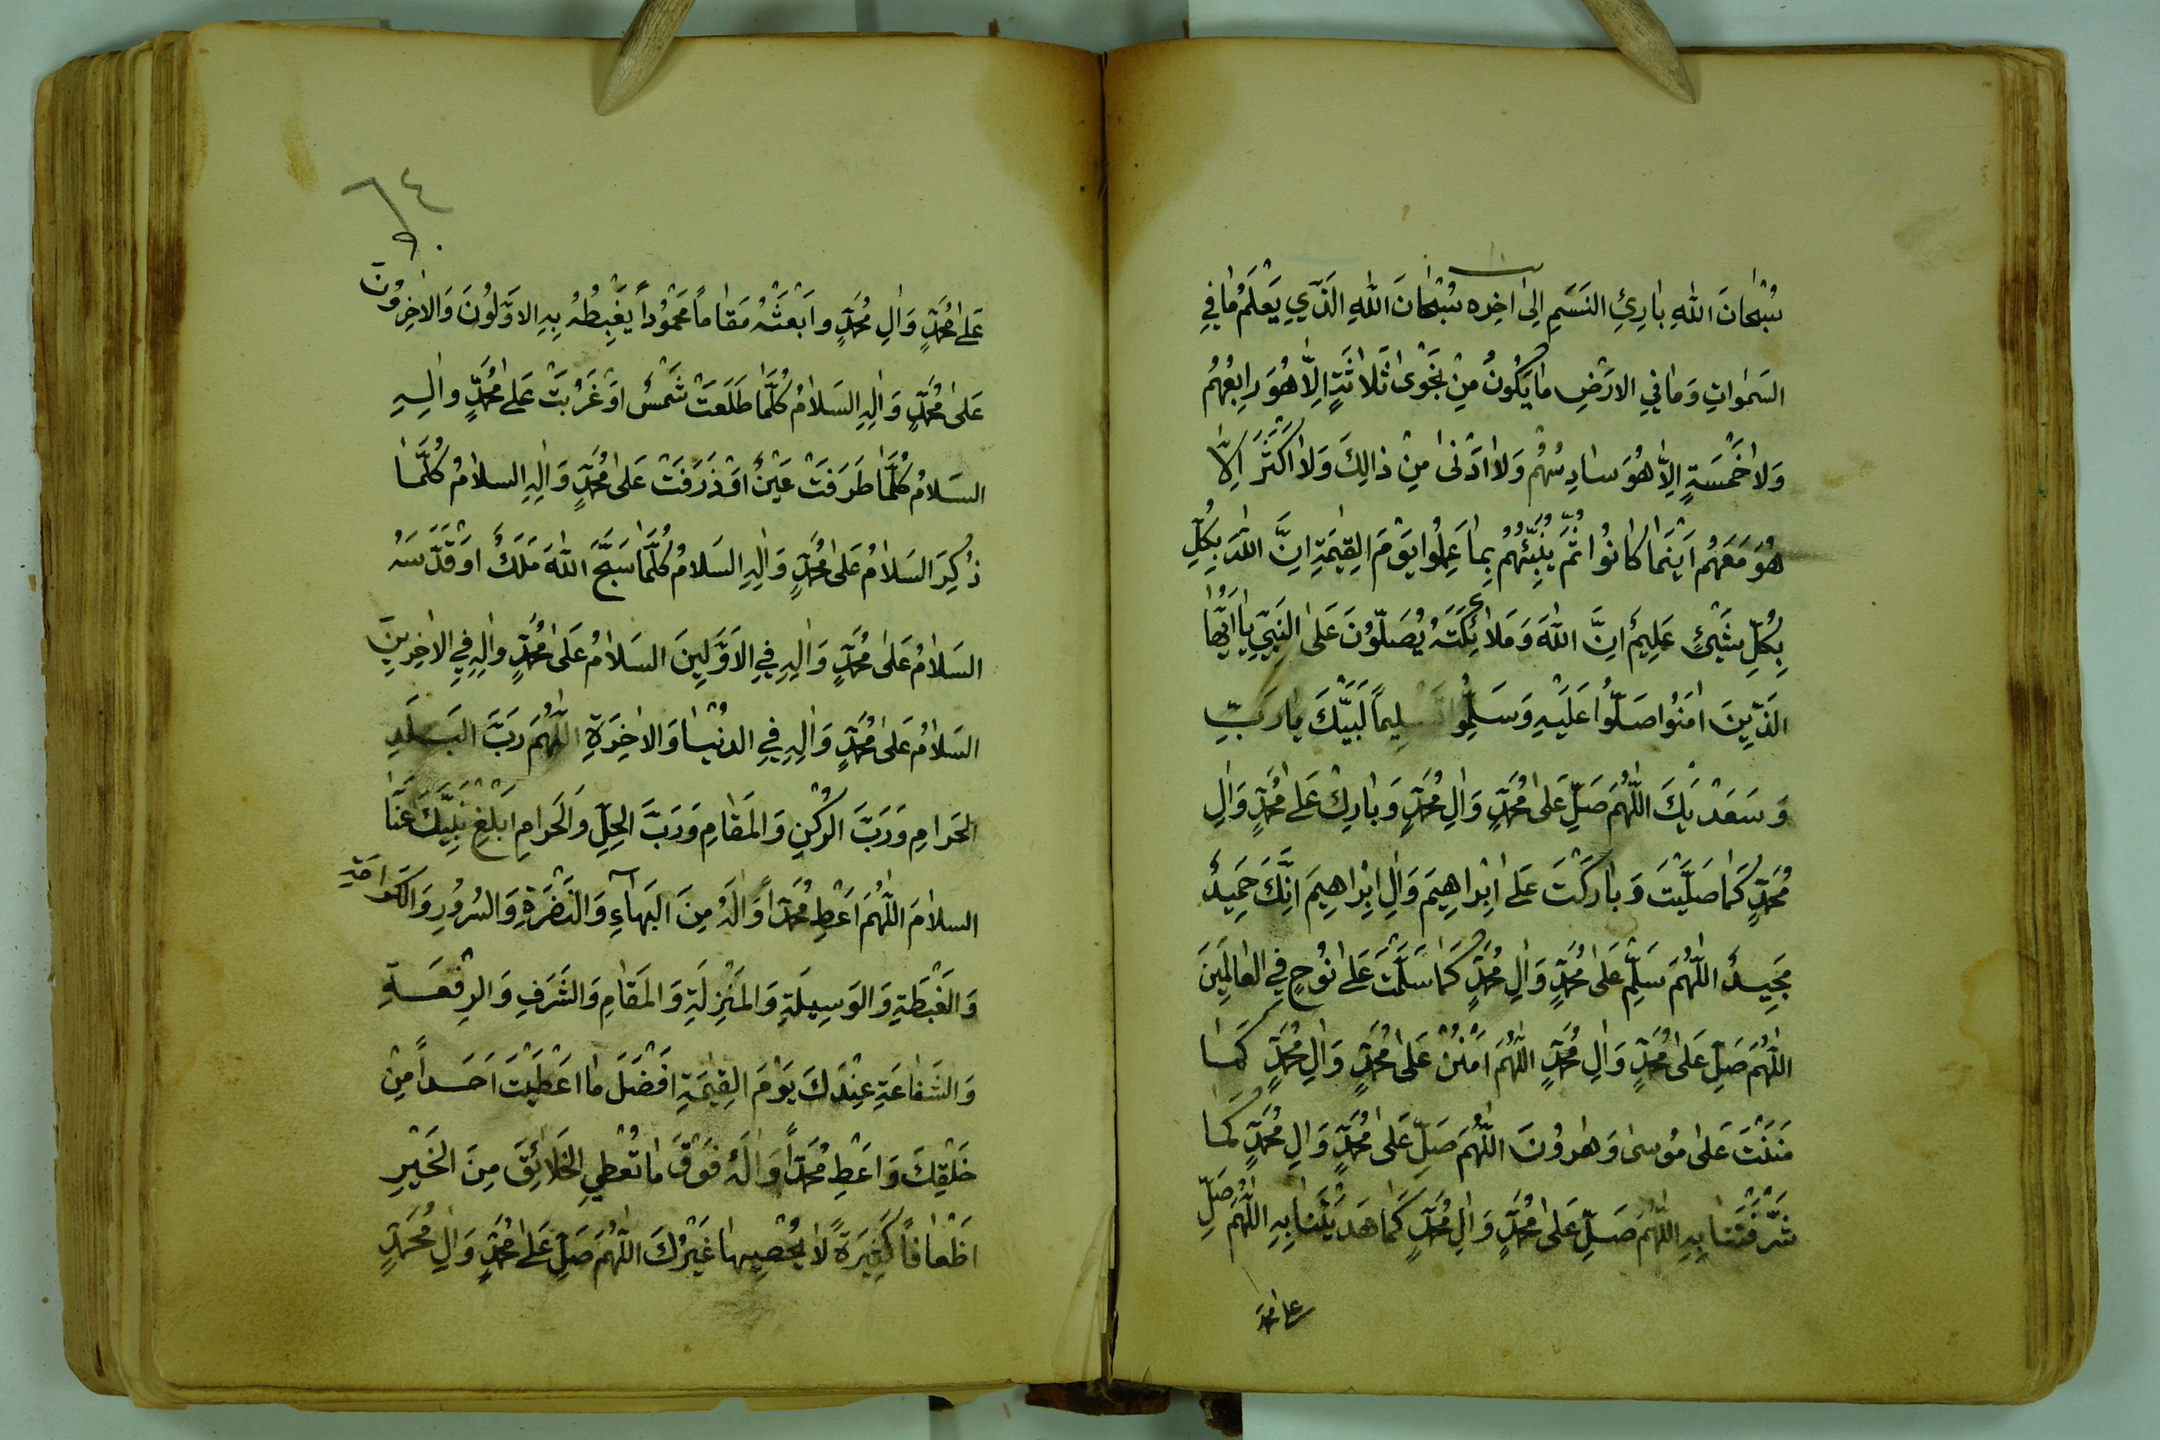 سُبْحَانَ اللهِ بَارِئِ النَسَمِ اِلىٰ اخِره سُبْحَانَ اللهِ الَّذِي يَعْلَمُ مَا فِي
السَمٰواتِ وَمَا فِي الارَضِ مَا يَكُونُ مِنْ نَجْوىٰ ثَلاثَةٍ اِلّا هُوَ رابِعُهُم
وَلا خَمْسَةٍ اِلّا هُوَ سَادِسُهُم وَلا اَدْنىٰ مِنْ ذالِكَ وَلا اَكْثَرَ اِلّا
هُوَ مَعَهُم اَيْنَمَا كانُوا ثُمَّ يُنَبِّئُهُم بِما عَمِلُوا يَوْمَ القِيٰمَةِ اِنَّ اللهَ بِكُلِّ
بِكُلِّ شَيْئٍ عَلِيمٌ اِنَّ اللهَ وَمَلائِكَتَهُ يُصَلّوُنَ عَلىٰ النَبِيِّ يا اَيُّهَا
الَّذِينَ امَنُوا صَلُّوا عَلَيْهِ وَسَلِّمُوا تَسْلِيماً لَبَيَّكَ يا رَبِّ
وَسَعَدْيَكَ اللّهُمَ صَلِّ عَلىٰ مُحَمَّدٍ وَالِ مُحَمَّدٍ وَبارِكْ عَلىٰ مُحَمَّدٍ وَالِ
مُحَمَّدٍ كَمَا صَلَّيْتَ وَبارَكْتَ عَلىٰ اِبْراهِيمَ وَالِ اِبْراهِيمَ اِنَّكَ حَمِيدٌ
مَجِيدٌ اللّهُمَ سَلِّمْ عَلىٰ مُحَمَّدٍ وَالِ مُحَمَّدٍ كَمَا سَلَّمْتَ عَلىٰ نُوحٍ فِي العالَمِينَ
اللّهُمَ صَلِّ عَلىٰ مُحَمَّدٍ وَالِ مُحَمَّدٍ اللّهُمَ امْنُنْ عَلىٰ مُحَمَّدٍ وَالِ مُحَمَّدٍ كَمَا
مَنَنْتَ عَلىٰ مُوسىٰ وَهٰرُونَ اللّهُمَ صَلِّ عَلىٰ مُحَمَّدٍ وَالِ مُحَمَّدٍ كَمَا
شَرَّفْتَنا بِهِ اللّهُمَ صَلِّ عَلىٰ مُحَمَّدٍ وَالِ مُحَمَّدٍ كَمَا هَدَيْتَنا بِهِ اللّهُمَ صَلِّ
على محمد
٦٤
عَلىٰ مُحَمَّدٍ وَالِ مُحَمَّدٍ وابْعَثْهُ مَقاماً مَحْمُوداً يَغْبِطُهُ بِهِ الاوَّلُونَ وَالاخِرُونَ
عَلىٰ مُحَمَّدٍ وَالِهِ السَلامُ كُلَّمَا طَلَعَتْ شَمْسٌ اوْ غَرُبَتْ عَلىٰ مُحَمَّدٍ والِهِ
السَلامُ كُلَّمَا طَرَفَتْ عَيْنٌ اوْ ذَرَفَتْ عَلىٰ مُحَمَّدٍ وَالِهِ السلامُ كُلَّمَا
ذُكِرَ السَلامُ عَلىٰ مُحَمَّدٍ وَالِهِ السَلامُ كُلَّمَا سَبَّحَ اللهَ مَلَكٌ اوْ قَدَّسَهُ
السَلامُ عَلىٰ مُحَمَّدٍ وَالِهِ فِي الاَوَّلِينَ السَلامُ عَلىٰ مُحَمَّدٍ والِهِ فِي الاخِرِينَ
السَلامُ عَلىٰ مُحَمَّدٍ وَالِهِ فِي الدُنْيا وَالاخِرَةِ اللّهُمَ رَبَّ البَلَدِ
الحَرامِ وَرَبَّ الرُكْنِ وَالمَقامِ وَرَبَّ الحِلِّ وَالحَرامِ اَبْلِغْ نَبِيَّكَ عَنَّا
السلامَ اللّهُمَ اَعْطِ مُحَمَّداً وَالَهُ مِنَ البَهاءِ وَالنَضْرَةِ وَالسُرُورِ وَالكَرامَةِ
وَالغَبْطَةِ وَالوَسِيلَةِ وَالمَنْزِلَةِ وَالمَقامِ وَالشَرَفِ وَالرِفْعَةِ
وَالشَفاعَةِ عِنْدَكَ يَوْمَ القِيٰمَةِ اَفْضَلَ ما اعْطَيْتَ اَحَداً مِنْ
خَلْقِكَ وَاعْطِ مُحَمَّداً وَالَهُ فَوْقَ ما تُعْطِي الخَلائِقَ مِنَ الخَيْرِ
اَظْعافاً كَثِيرَةً لا يُحْصِيها غَيْرُكَ اللّهُمَ صَلِّ عَلىٰ مُحَمَّدٍ وَالِ مُحَمَّدٍ